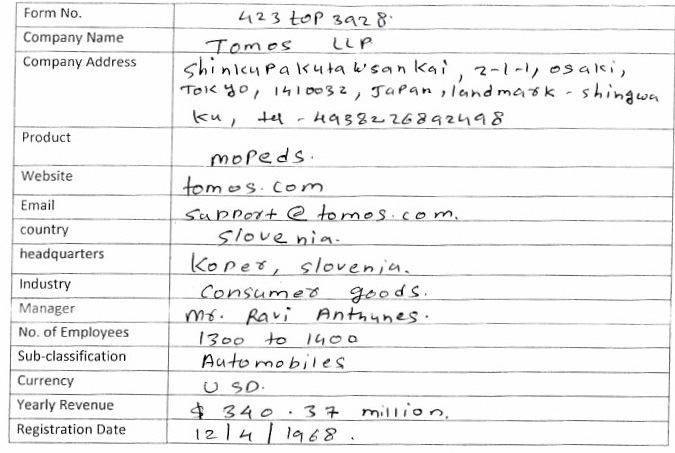 Form No. 423 top 3928.
Company Name Tomos LLP
Company Address Shinkupakutaw'sankai, 2-1-1, osaki,
Tokyo, 1410032, Japan, landmark - shingwa
ku, tel - 4938226892498
Product mopeds.
Website tomos.com
Email support@tomos.com.
country Slovenia.
headquarters Koper, slovenia.
Industry Consumer goods.
Manager Mr. Ravi Anthunes.
No. of Employees 1300 to 1400
Sub-classification Automobiles
Currency USD.
Yearly Revenue $ 340.37 million.
Registration Date 12/4/1968.